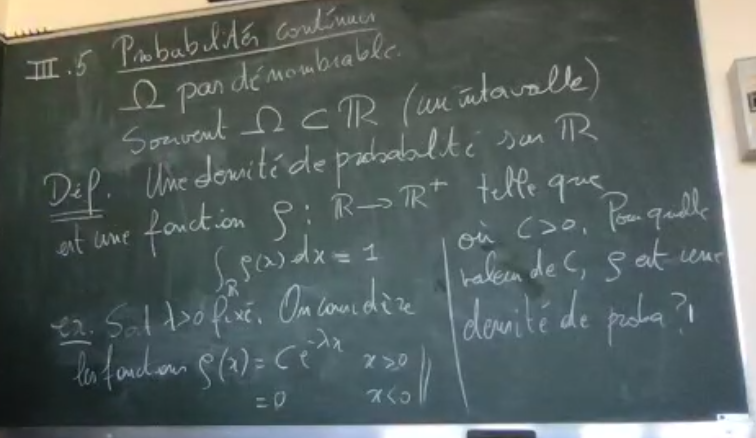 III.5 Probabilités continues
Ω pas dénombrable.
Souvent Ω ⊂ ℝ (un intervalle)
Déf. Une densité de probabilité sur ℝ
est une fonction ρ : ℝ → ℝ⁺ telle que
∫_ℝ ρ(x) dx = 1
ex. Soit λ>0 fixé. On considère
les fonctions ρ(x) = C e^{-λx} x>0
= 0 x<0
où C>0. Pour quelle
valeur de C, ρ est une
densité de proba ?